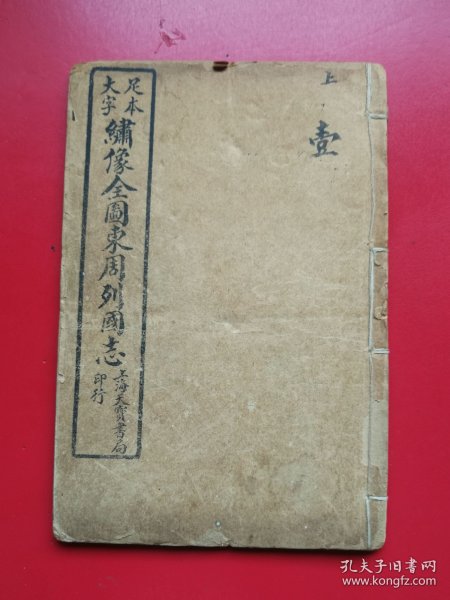 上
壹
足本
大字
繡像全圖東周列國志
上海天寶書局
印行
孔夫子旧书网
www.kongfz.com